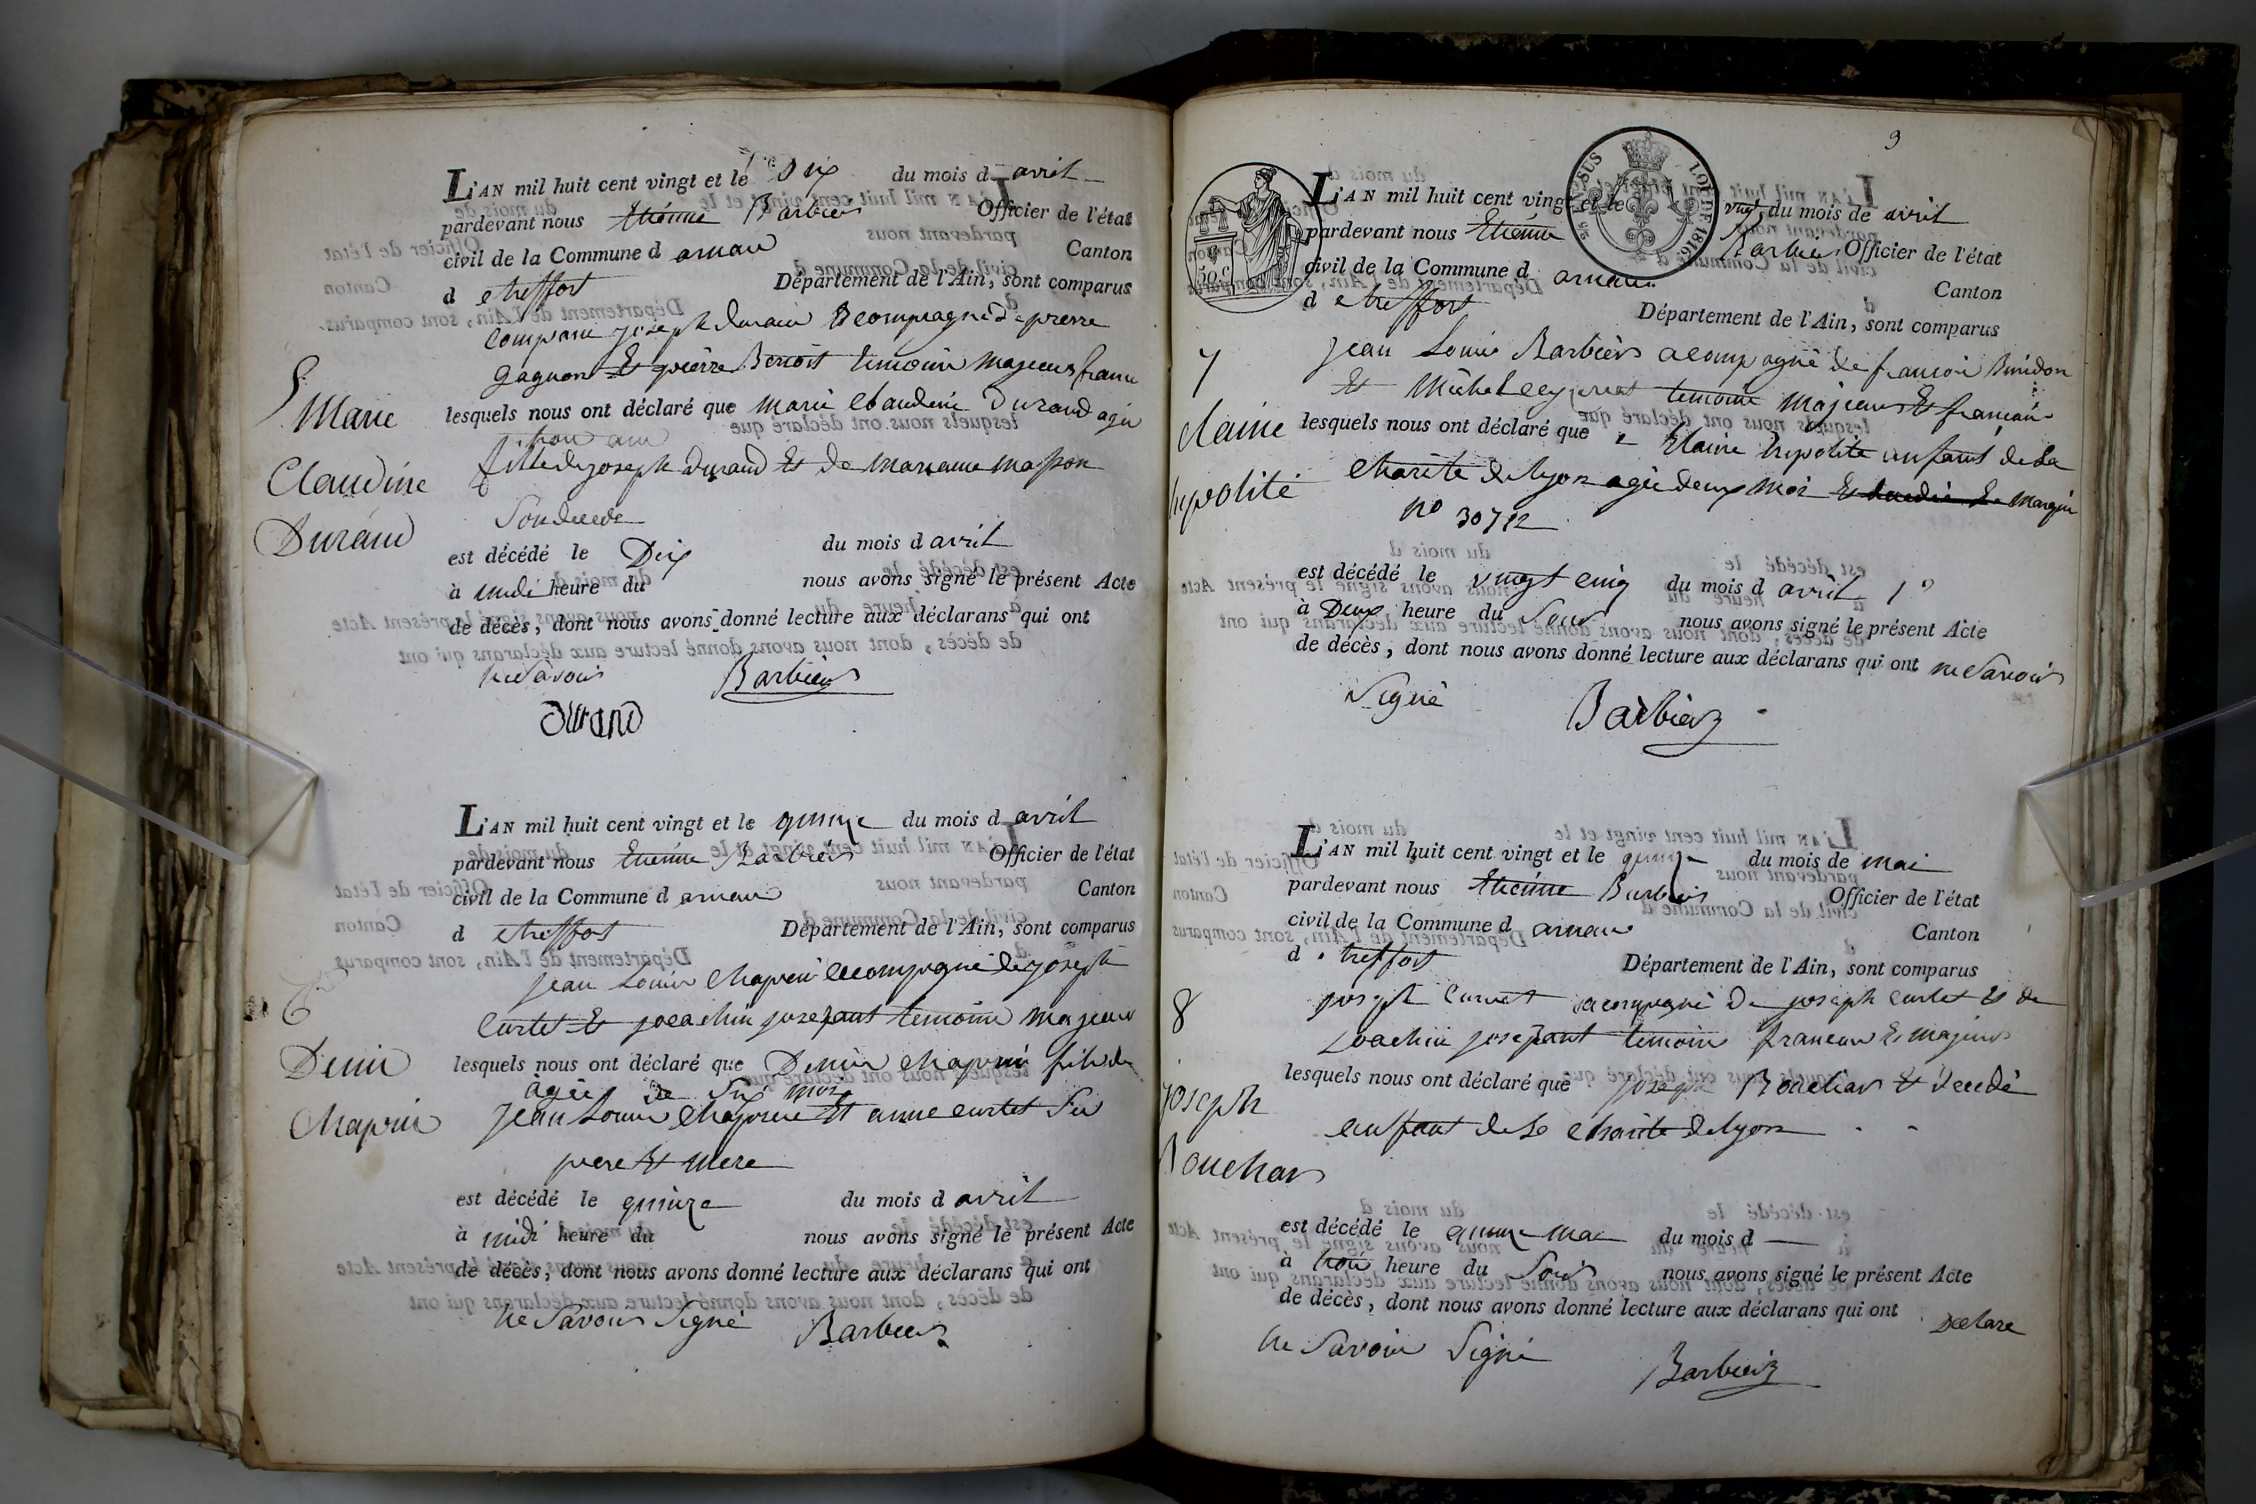 L'AN mil huit cent vingt et le Dix du mois d avril
pardevant nous Etiénne Barbier Officier de l'état
civil de la Commune d arnan Canton
d etreffort Département de l'Ain, sont comparus
Comparu joseph durain Acompagné de pierre
gagnon Et pierre Benoit temoin majeur
5
Marie
Claudine
Durand
lesquels nous ont déclaré que marie Claudine Durand agée
fille de joseph Durand Et de mariane masson
est décédé le Dix du mois d avril
à midi heure du nous avons signé le présent Acte
de décès, dont nous avons donné lecture aux déclarans qui ont
ne Savoir Barbier
Durand
L'AN mil huit cent vingt et le quinze du mois d avril
pardevant nous Etiénne Barbier Officier de l'état
civil de la Commune d arnan Canton
d etreffort Département de l'Ain, sont comparus
jean Louis Chapui acompagné de joseph
Curtet Et joachin temoins majeur
6
Deni
Chapui
lesquels nous ont déclaré que Denis Chapui fils de
àgée de Six moi
jean Louis Chapui Et anne Curtet Su
pere Et mere
est décédé le quinze du mois d avril
à midi heure du nous avons signé le présent Acte
de décès, dont nous avons donné lecture aux déclarans qui ont
ne Savoir Signé Barbier
9
50 c
LOI DE 1816
L'AN mil huit cent vingt et le vingt du mois de avril
pardevant nous Etiénne Barbier Officier de l'état
civil de la Commune d arnan Canton
d etreffort Département de l'Ain, sont comparus
jean Louis Barbier acompagné de francoi
Et Michel temoins majeur Et francais
7
Claire
hipolite
lesquels nous ont déclaré que Claire hipolite enfant de La
Charité de lyon agée deux moi
no 30712
est décédé le vingt cinq du mois d avril
à Deux heure du Soir nous avons signé le présent Acte
de décès, dont nous avons donné lecture aux déclarans qui ont ne Savoir
Signé Barbier
L'AN mil huit cent vingt et le quinze du mois de mai
pardevant nous Etiénne Barbier Officier de l'état
civil de la Commune d arnan Canton
d treffort Département de l'Ain, sont comparus
joseph acompagné De joseph Curtet Et de
joachin temoin francais Et majeur
8
joseph
Bouchar
lesquels nous ont déclaré que joseph Bouchar Et decedé
enfant de La Charité de lyon
est décédé le quinze mai du mois d
à troi heure du Soir nous avons signé le présent Acte
de décès, dont nous avons donné lecture aux déclarans qui ont Declare
ne Savoir Signé Barbier